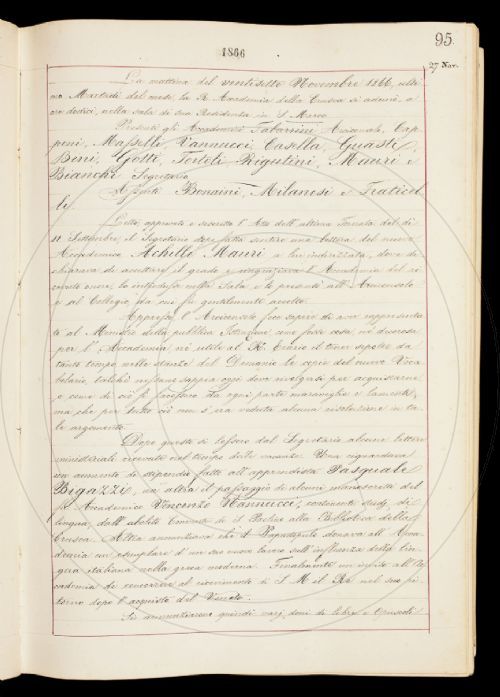 95.
1866
27 Nov.
La mattina del ventisette Novembre 1866, ulti-
mo Martedì del mese, la R. Accademia della Crusca si adunò, a
ore dodici, nella sala di sua Residenza in S. Marco.
Presenti gli Accademici Tabarrini Arciconsolo, Cap-
poni, Maffei Vannucci Casella, Guasti,
Bini, Gotti, Tortoli Rigutini, Mauri e
Bianchi Segretario.
Assenti Bonaini, Milanesi e Fraticel
li.
Letto, approvato e riscontro l'Atto dell'ultima Tornata del dì
11 Settembre, il Segretario dopo fatta sentire una lettera del nuovo
Accademico Achille Mauri a lui indirizzata, dove di-
chiarava di accettare il grado e ringraziava l'Accademia del ri-
cevuto onore, lo introdusse nella Sala e lo presentò all'Arciconsolo
e al Collegio, da cui fu gentilmente accolto.
Appresso l'Arciconsolo fece sapere di aver rappresenta-
to al Ministro della pubblica Istruzione come fosse cosa nè decorosa
per l'Accademia nè utile al R. Erario il tener sepolte da
tanto tempo nelle stanze del Demanio le copie del nuovo Voca-
bolario, talchè nessuno sappia oggi dove rivolgersi per acquistarne
e come di ciò si facessero da ogni parte maraviglie e lamenti,
ma che per tutto ciò non s'era veduta alcuna risoluzione in ta-
le argomento.
Dopo questo si lessero dal Segretario alcune lettere
ministeriali ricevute nel tempo delle vacanze. Una riguardava
un aumento di stipendio fatto all'apprendista Pasquale
Bigazzi, un'altra il passaggio di alcuni manoscritti del
fu Accademico Vincenzo Nannucci, contenente studj di
lingua, dall'abolito Convento di S. Paolino alla Biblioteca della
Crusca. Altra annunziava che il Papantigate donava all'Acca-
demia un esemplare d'un suo nuovo lavoro sull'influenza della lin-
gua italiana nella greca moderna. Finalmente un invito all'Ac-
cademia di concorrere al ricevimento di S. M. il Re nel suo ri-
torno dopo l'acquisto del Veneto.
Si annunziarono quindi varj doni di Libri e Opuscoli